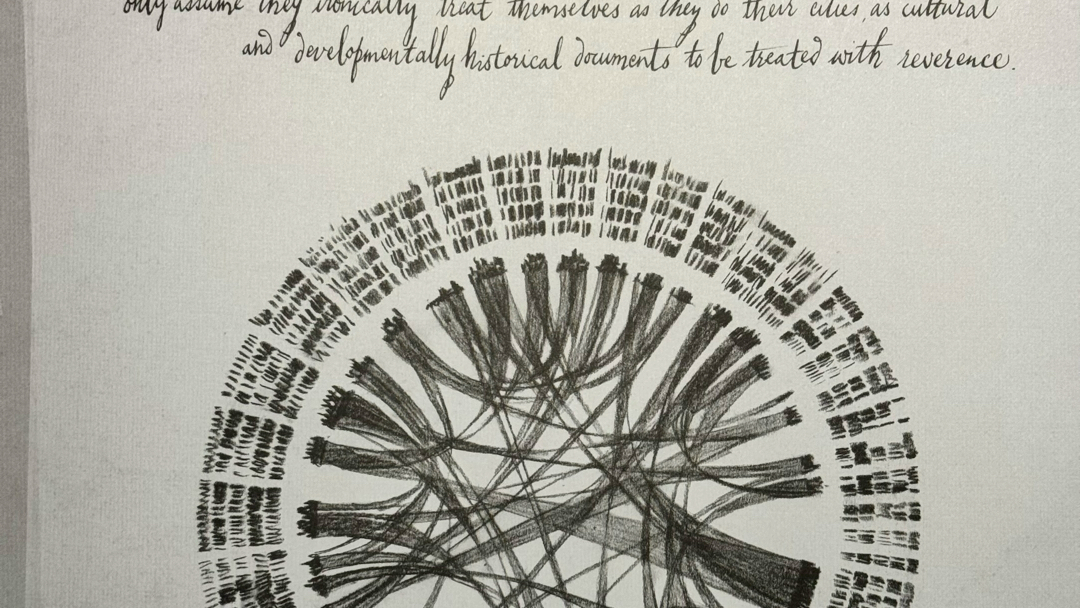 only assume they ironically treat themselves as they do their cities, as cultural
and developmentally historical documents to be treated with reverence.